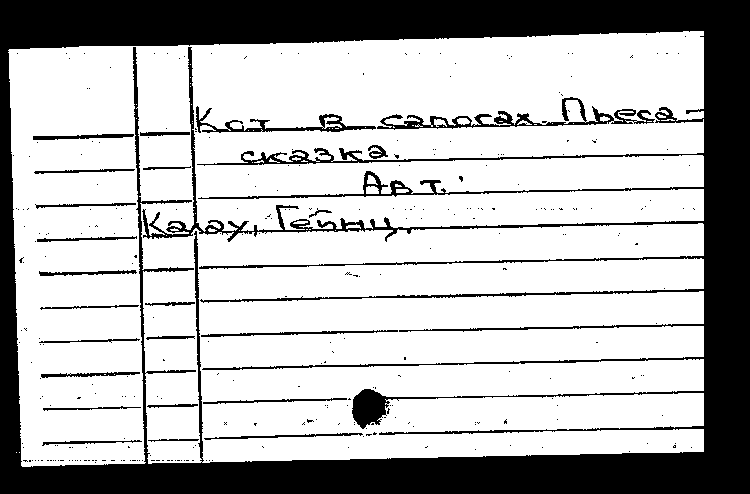 Кот в сапогах. Пьеса-
сказка.
Авт.:
Калау, Гейнц.